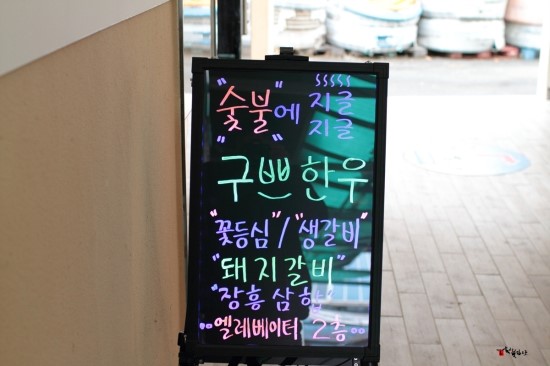 "숯불"에 지글
지글
구쁘한우
"꽃등심" / "생갈비"
"돼지갈비"
"장흥삼합"
••엘레베이터 2층••